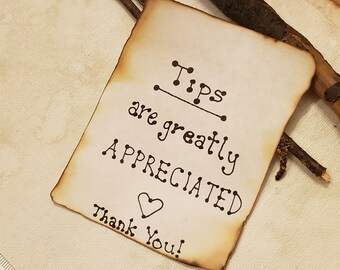 Tips
are greatly
APPRECIATED
Thank You!